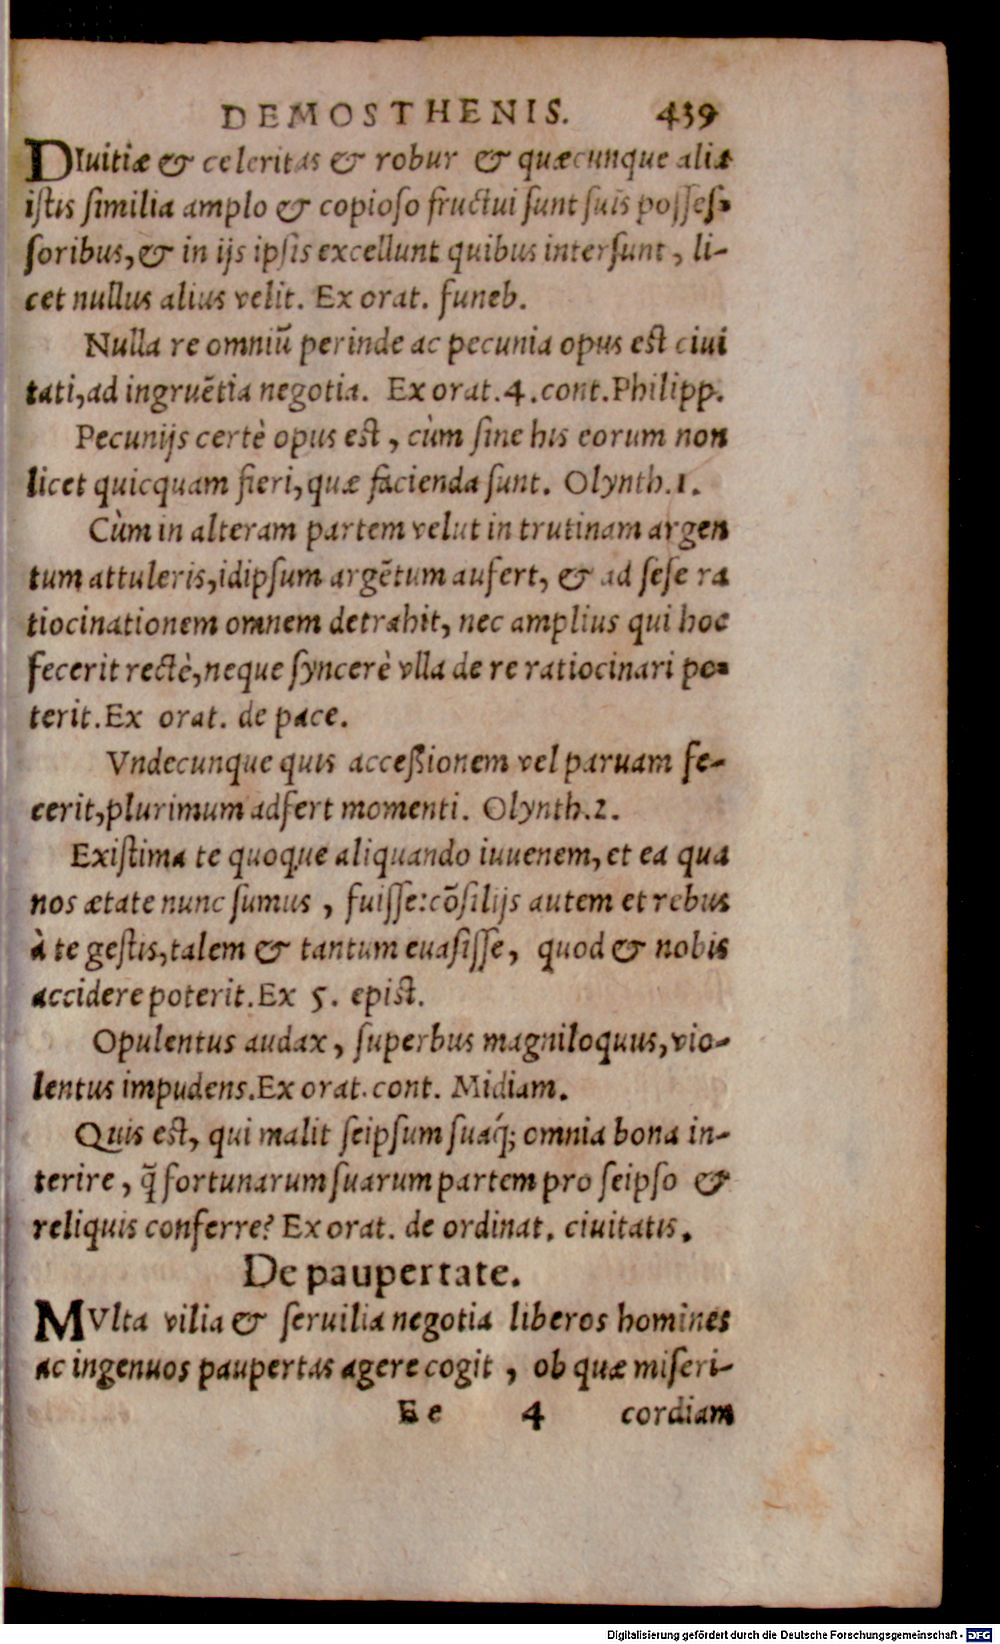 DEMOSTHENIS. 439
DIuitiæ & celeritas & robur & quæcunque aliæ
iſtis ſimilia amplo & copioſo fructui ſunt ſuis poſſeſ-
ſoribus, & in ijs ipſis excellunt quibus interſunt, li-
cet nullus alius velit. Ex orat. funeb.
Nulla re omniũ perinde ac pecunia opus eſt ciui
tati, ad ingruẽtia negotia. Ex orat. 4. cont. Philipp.
Pecunijs certè opus eſt, cùm ſine his eorum non
licet quicquam fieri, quæ facienda ſunt. Olynth. 1.
Cùm in alteram partem velut in trutinam argen
tum attuleris, idipſum argẽtum aufert, & ad ſeſe ra
tiocinationem omnem detrahit, nec amplius qui hoc
fecerit rectè, neque ſyncerè vlla de re ratiocinari po-
terit. Ex orat. de pace.
Vndecunque quis acceßionem vel paruam fe-
cerit, plurimum adfert momenti. Olynth. 2.
Exiſtima te quoque aliquando iuuenem, et ea qua
nos ætate nunc ſumus, fuiſſe: cõſilijs autem et rebus
à te geſtis, talem & tantum euaſiſſe, quod & nobis
accidere poterit. Ex 5. epiſt.
Opulentus audax, ſuperbus magniloquus, vio-
lentus impudens. Ex orat. cont. Midiam.
Quis eſt, qui malit ſeipſum ſuaq́; omnia bona in-
terire, q̃ fortunarum ſuarum partem pro ſeipſo &
reliquis conferre? Ex orat. de ordinat. ciuitatis.
De paupertate.
MVlta vilia & ſeruilia negotia liberos homines
ac ingenuos paupertas agere cogit, ob quæ miſeri-
Ee 4 cordiam
Digitalisierung gefördert durch die Deutsche Forschungsgemeinschaft - DFG